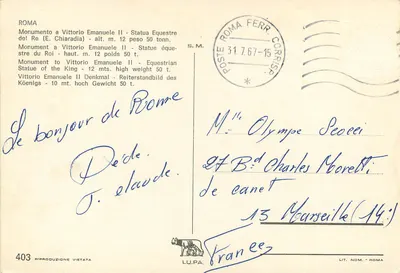 ROMA
Monumento a Vittorio Emanuele II - Statua Equestre
del Re (E. Chiaradia) - alt. m. 12 peso 50 tonn.
Monument a Vittorio Emanuele II - Status éque-
stre du Roi - haut. m. 12 poids 50 t.
Monument to Vittorio Emanuele II - Equestrian
Statue of the King - 12 mts. high weight 50 t.
Vittorio Emanuele II Denkmal - Reiterstandbild des
Köenigs - 10 mt. hoch Gewicht 50 t.
S. M.
POSTE ROMA FERR. CORRISP.
31.7.67-15
Le bonjour de Rome
Dédé.
J. claude.
Mlle Olympe Scocci
27 Bd Charles Moretti
de canet
13 Marseille (14e)
France
403 RIPRODUZIONE VIETATA
L.U.P.A.
LIT. NOM. - ROMA